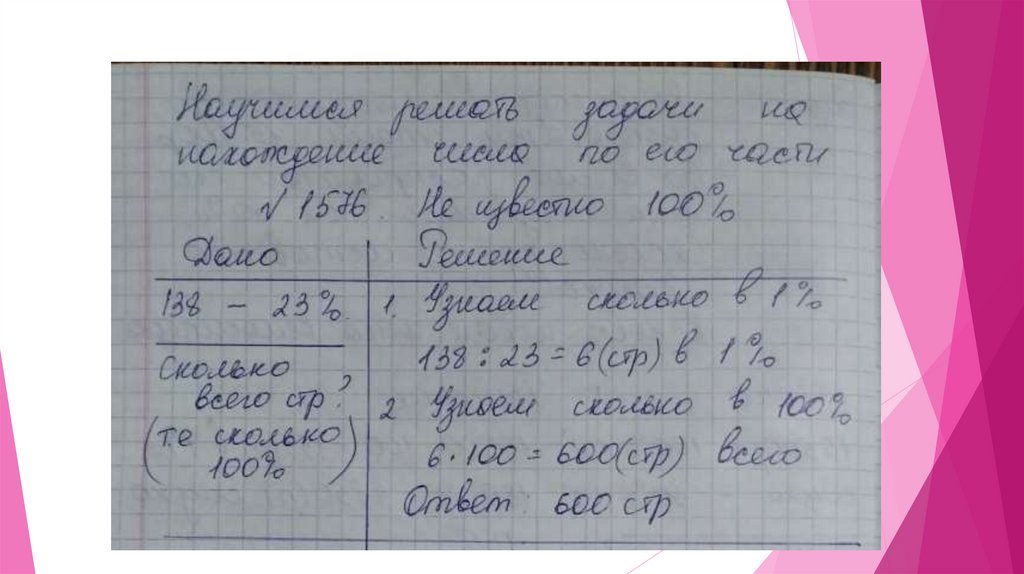 Научимся решать задачи на
нахождение числа по его части
√ 1576. Не известно 100%
Дано
Решение
138 – 23%.
1. Узнаем сколько в 1%
138 : 23 = 6 (стр) в 1%
Сколько
всего стр?
(т.е сколько
100%)
2 Узнаем сколько в 100%
6 · 100 = 600 (стр) всего
Ответ: 600 стр